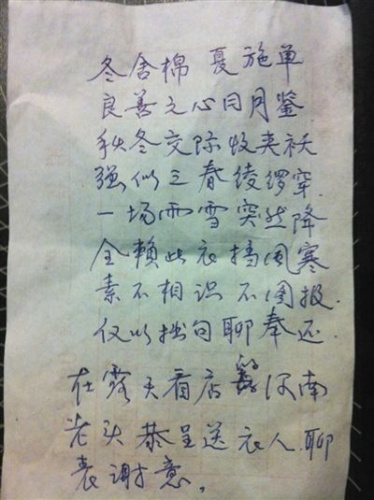 冬舍棉 夏施单
良善之心日月鉴
秋冬交际收夹袄
强似三春绫缪穿.
一场雨雪突然降
全赖此衣挡风寒
素不相识不图报.
仅以拙句聊奉还.
在露天看店 河南
老头恭呈送衣人.聊
表谢意。